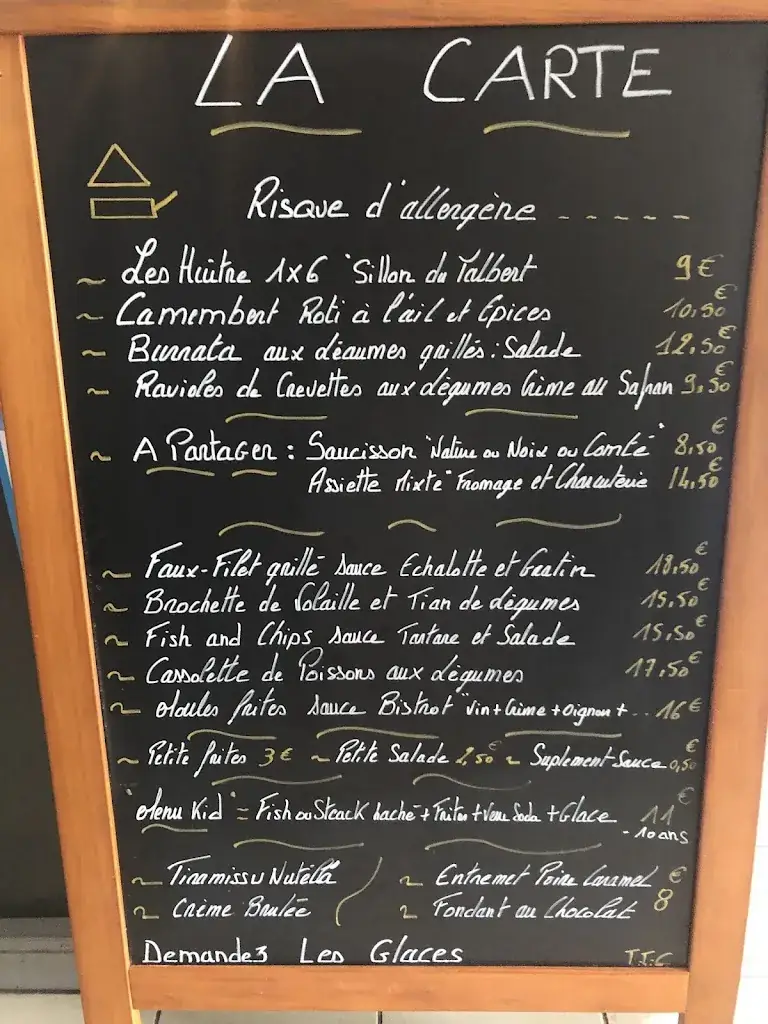 LA CARTE
Risque d'allergène -----
~ Les Huitre 1x6 "Sillon du Talbert 9€
~ Camembert Roti à l'ail et Epices 10,50€
~ Burrata aux légumes grillés : Salade 12,50€
~ Ravioles de Crevettes aux légumes Crème au Safran 9,50€
~ A PARTAGER : Saucisson "Nature ou Noix ou Comté" 8,50€
Assiette Mixte" Fromage et Charcuterie 14,50€
~ Faux-Filet grillé sauce Echalotte et Gratin 18,50€
~ Brochette de Volaille et Tian de légumes 15,50€
~ Fish and Chips sauce Tartare et Salade 15,50€
~ Cassolette de Poissons aux légumes 17,50€
~ Moules frites sauce Bistrot "Vin + Crème + Oignon + .. 16€
~ Petite frites 3€ ~ Petite Salade 2,50€ ~ Suplement Sauce 0,50€
"Menu Kid" = Fish ou Steack haché + Frites + Verre Soda + Glace 11€
- 10 ans
~ Tiramissu Nutella ~ Entremet Poire Caramel €
~ Crème Brulée ~ Fondant au Chocolat 8
Demandez Les Glaces T.T.C